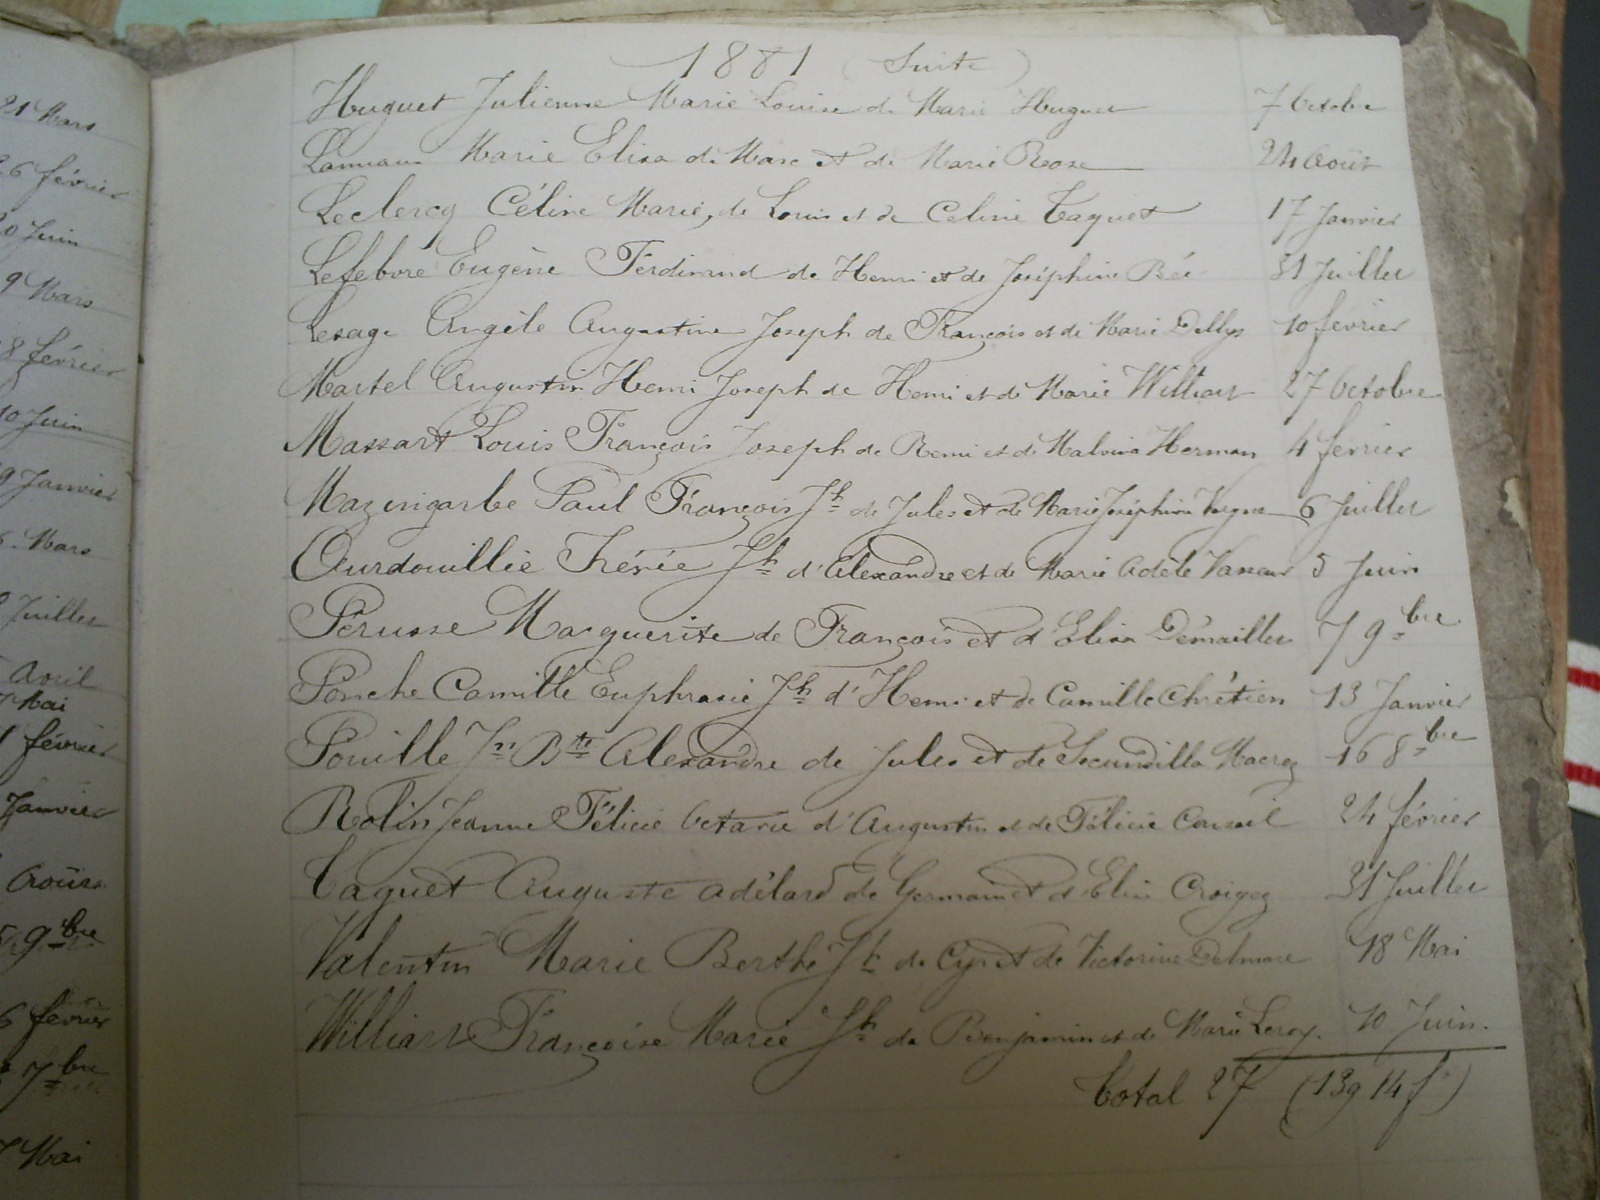 21 Mars
26 février
10 Juin
9 Mars
8 février
10 Juin
9 Janvier
Mars
Juillet
Avril
Mai
février
Janvier
Août
9bre
6 février
7bre
Mai
1881 (Suite)
Huguet Julienne Marie Louise de Marie Huguet 7 Octobre
Marie Elisa de Marc et de Marie Rose 24 Août
Leclercq Céline Marie, de Louis et de Céline Taquet 17 Janvier
Lefebvre Eugène Ferdinand de Henri et de Joséphine Bée 31 Juillet
Lesage Angèle Augustine Joseph de François et de Marie Dellys 10 février
Martel Augustin Henri Joseph de Henri et de Marie Williart 27 Octobre
Massart Louis François Joseph de Remi et de Malvina Herman 4 février
Mazingarbe Paul François Jh de Jules et de Marie Joséphine 6 Juillet
Ourdouillié Irénée Jh d'Alexandre et de Marie Adèle Vasseur 5 Juin
Pérusse Marguerite de François et d'Elisa Démailler 7 9bre
Ponche Camille Euphrasie Jh d'Henri et de Camille Chrétien 13 Janvier
Pouille Jn Bte Alexandre de Jules et de Secundilla Macrez 16 8bre
Rolin Jeanne Félicie Octavie d'Augustin et de Félicie Conseil 24 février
Taquet Auguste Adélard de Germain et d'Elise Croigez 31 Juillet
Valentin Marie Berthe Jh de Cyr et de Victorine Delmare 18 Mai
Williart Françoise Marie Jh de Benjamin et de Marie Leroy. 10 Juin.
Total 27 (13g 14f)